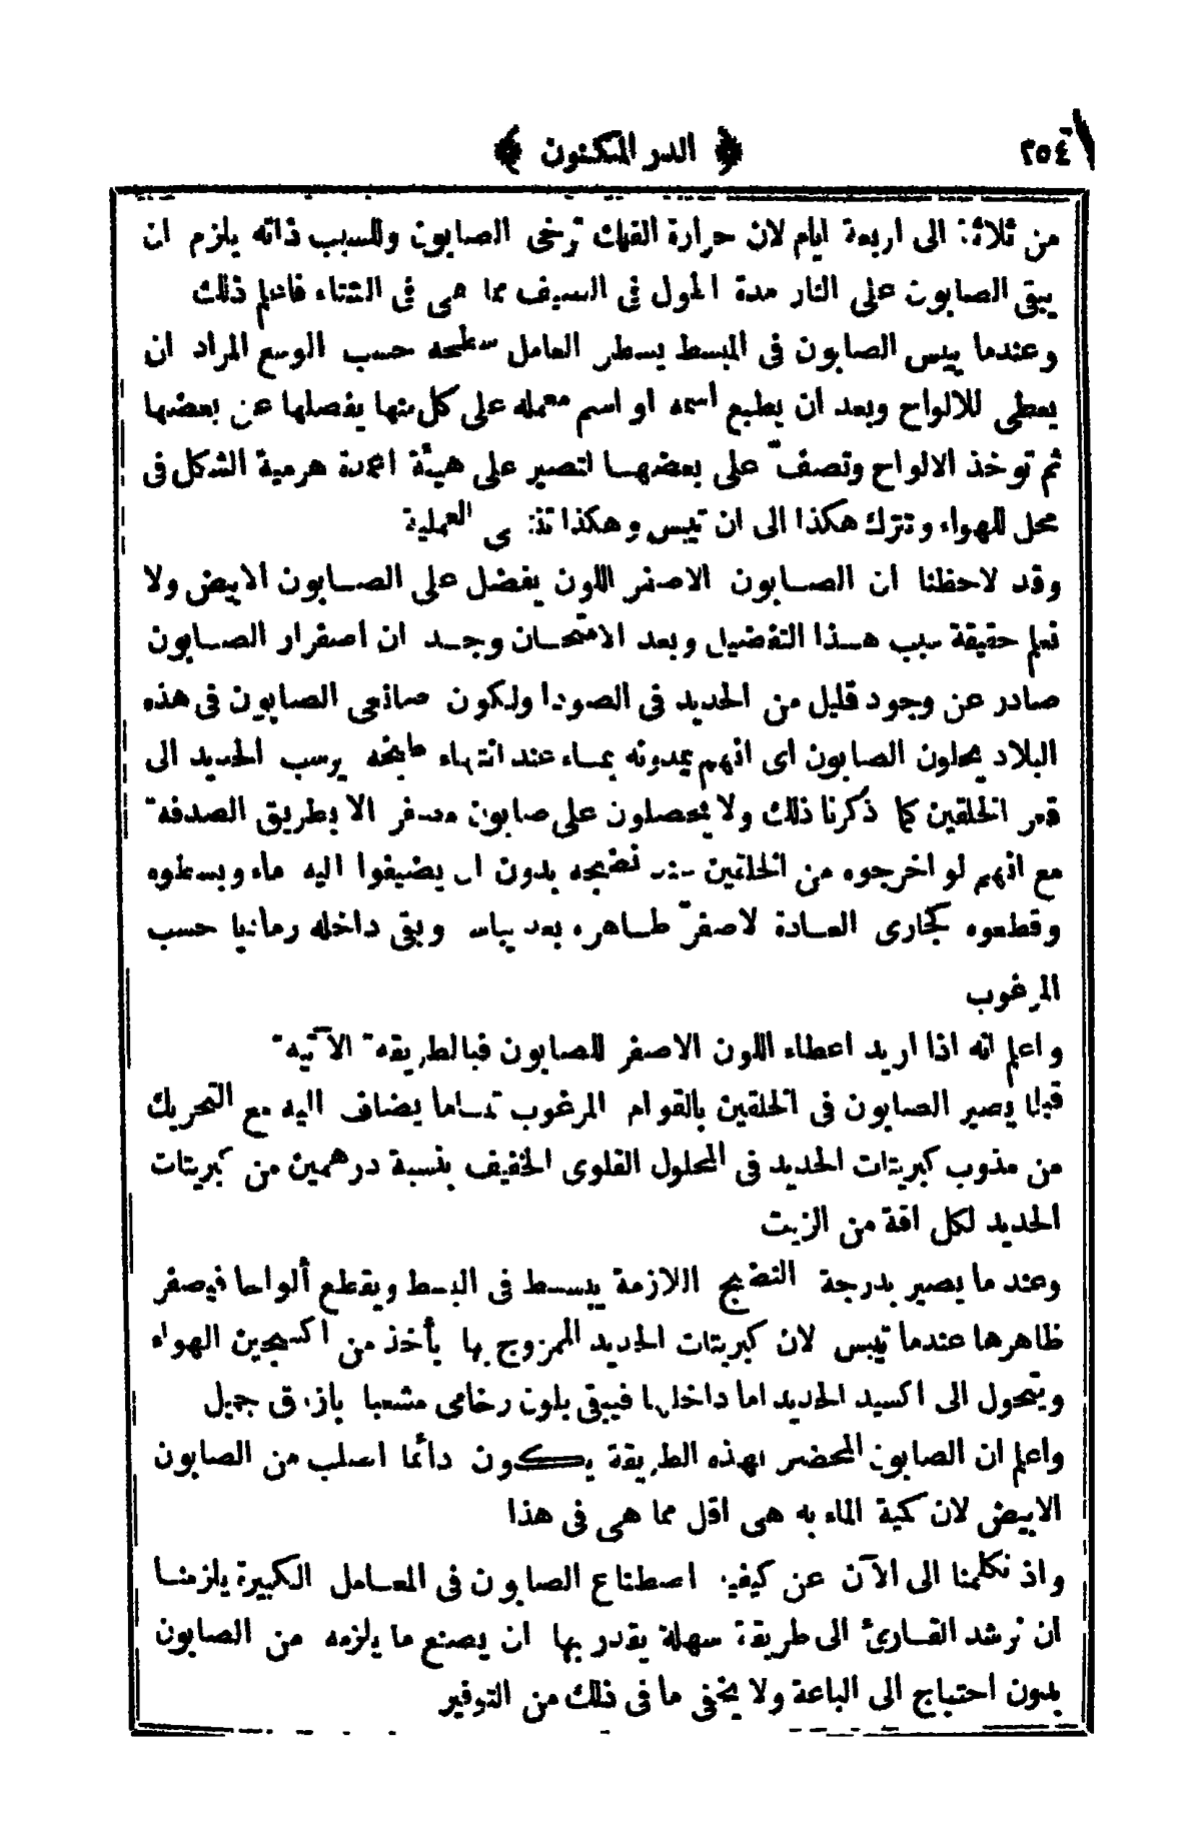 ٢٥٤
﴿ الدر المكنون ﴾
من ثلاثة الى اربعة ايام لان حرارة القيان ترخى الصابون وللسبب ذاته يلزم ان
يبقى الصابون على النار مدة اطول فى الصيف مما هى فى الشتاء فاعلم ذلك
وعندما ييبس الصابون فى المبسط يسطر العامل سطحه حسب الوسع المراد ان
يعطى للالواح وبعد ان يطبع اسمه او اسم معمله على كل منها يفصلها عن بعضها
ثم توخذ الالواح وتصفّ على بعضهـا لتصير على هيأة اعمدة هرمية الشكل فى
محل للهواء وتترك هكذا الى ان تيبس وهكذا العملية
وقد لاحظنا ان الصـابون الاصفر اللون يفضل على الصـابون الابيض ولا
نعلم حقيقة سبب هـذا التفضيل وبعد الامتحـان وجـد ان اصفرار الصـابون
صادر عن وجود قليل من الحديد فى الصودا ولكون صانعى الصابون فى هذه
البلاد يحلون الصابون اى انهم يمدونه بمـاء عند انتهاء طبخه يرسب الحديد الى
قعر الخلقين كما ذكرنا ذلك ولا يحصلون على صابون مصفر الا بطريق الصدفة
مع انهم لو اخرجوه من الخلقين عند نضجه بدون ان يضيفوا اليه ماء وبسطوه
وقطعوه كجارى العـادة لاصفرّ ظـاهره بعد يباسه وبقى داخله رمانيا حسب
المرغوب
واعلم انه اذا اريد اعطاء اللون الاصفر للصابون فبالطريقة الآتية
قبلما يصير الصابون فى الخلقين بالقوام المرغوب تمـاما يضاف اليه مع التحريك
من مذوب كبريتات الحديد فى المحلول القلوى الخفيف بنسبة درهمين من كبريتات
الحديد لكل اقة من الزيت
وعند ما يصير بدرجة النضج اللازمة يبسـط فى المبسط ويقطع ألواحا فيصفر
ظاهرها عندما تيبس لان كبريتات الحديد الممزوج بها يأخذ من اكسيجين الهواء
ويتحول الى اكسيد الحديد اما داخلها فيبقى بلون رخامى مشعبا بازرق جميل
واعلم ان الصابون المحضر بهذه الطريقة يكـون دائما اصلب من الصابون
الابيض لان كمية الماء به هى اقل مما هى فى هذا
واذ تكلمنا الى الآن عن كيفية اصطناع الصابون فى المعـامل الكبيرة يلزمنـا
ان نرشد القـارئ الى طريقة سهلة يقدر بها ان يصنع ما يلزمه من الصابون
بدون احتياج الى الباعة ولا يخفى ما فى ذلك من التوفير